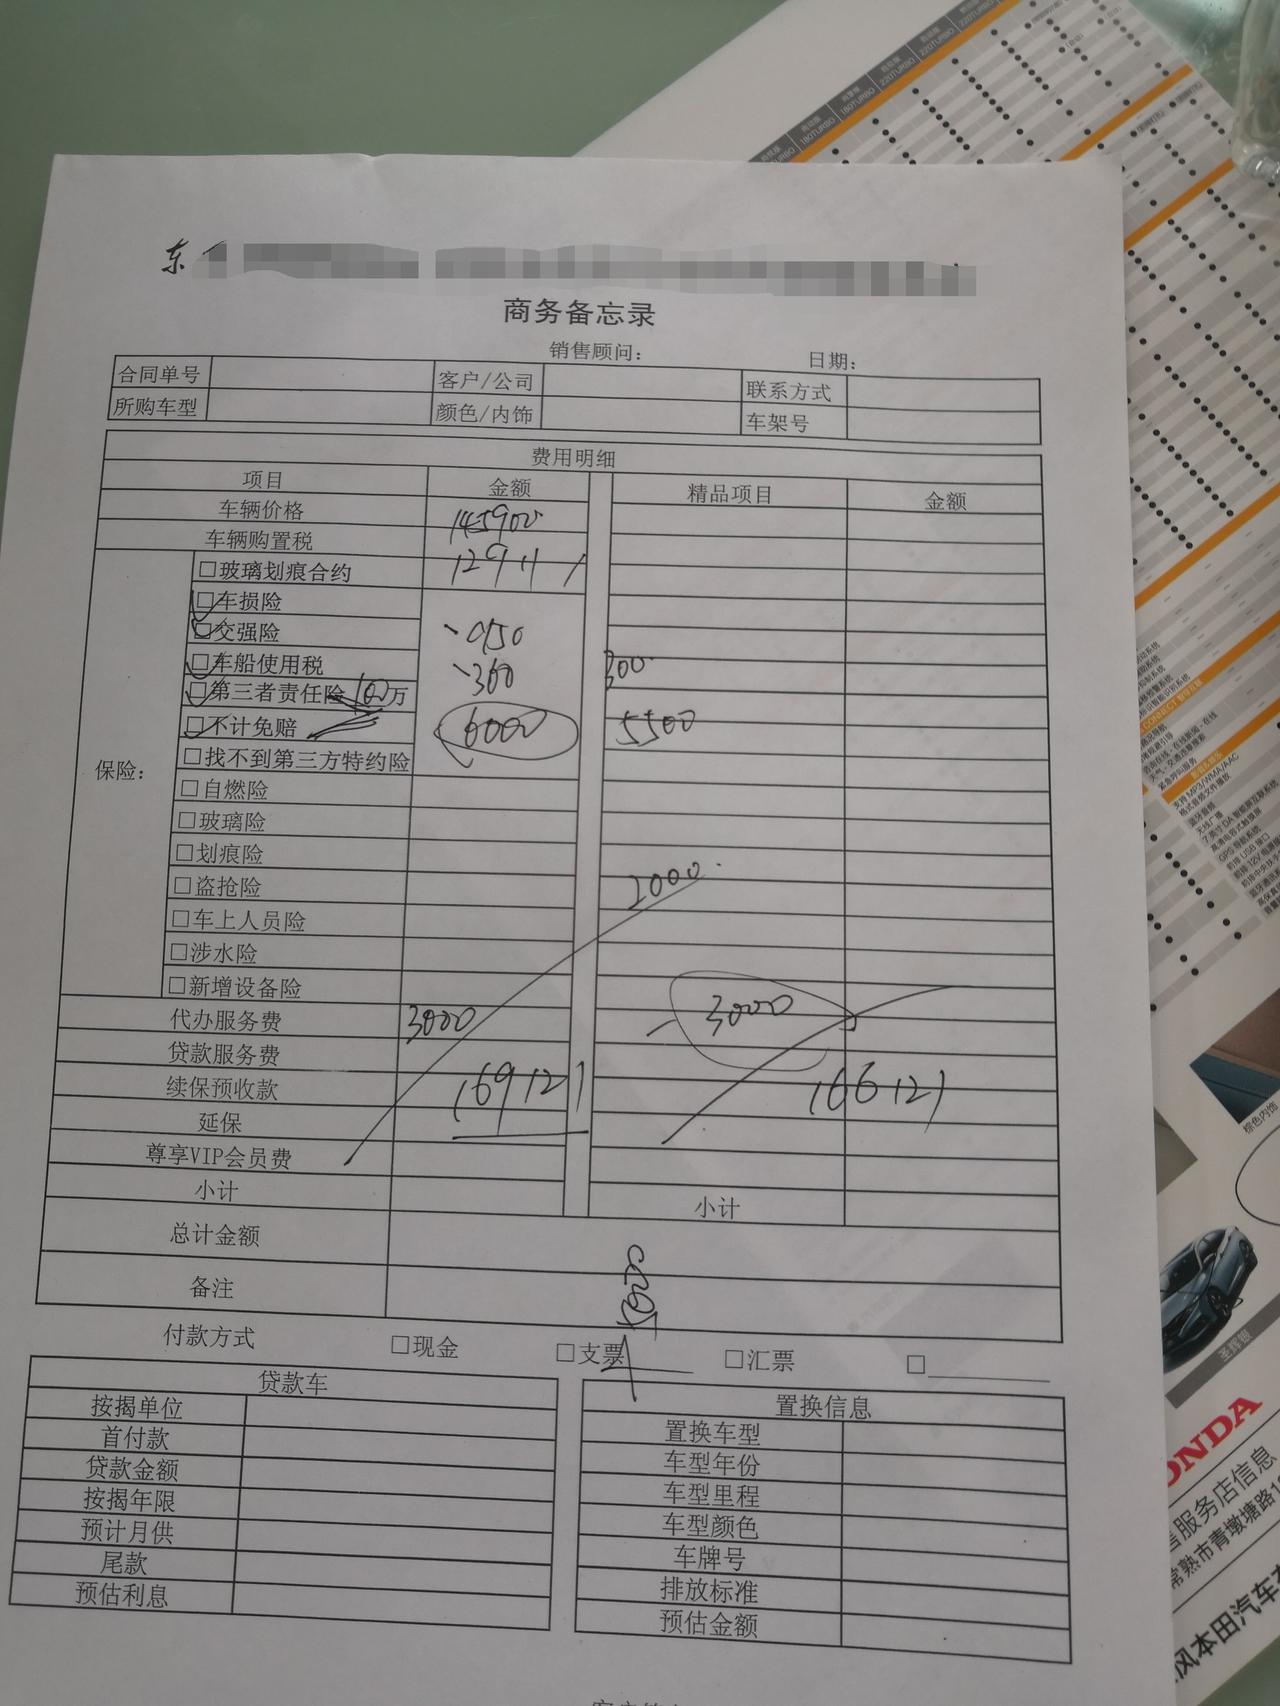 东
商务备忘录
销售顾问： 日期：
合同单号 客户/公司 联系方式
所购车型 颜色/内饰 车架号
费用明细
项目 金额 精品项目 金额
车辆价格 145900
车辆购置税 12911
保险：
□玻璃划痕合约
□车损险
□交强险 950
□车船使用税 360 300
□第三者责任险100万
□不计免赔 6000 5500
□找不到第三方特约险
□自燃险
□玻璃险
□划痕险
□盗抢险 2000
□车上人员险
□涉水险
□新增设备险
代办服务费 3000 3000
贷款服务费
续保预收款 169121 166121
延保
尊享VIP会员费
小计 小计
总计金额
备注
付款方式 □现金 □支票 □汇票 □
贷款车 置换信息
按揭单位 置换车型
首付款 车型年份
贷款金额 车型里程
按揭年限 车型颜色
预计月供 车牌号
尾款 排放标准
预估利息 预估金额
220TURBO
220TURBO
180TURBO
180TURBO
支持MP3/WMA/AAC
棕色内饰
ONDA
售服务店信息
常熟市青墩塘路1
风本田汽车